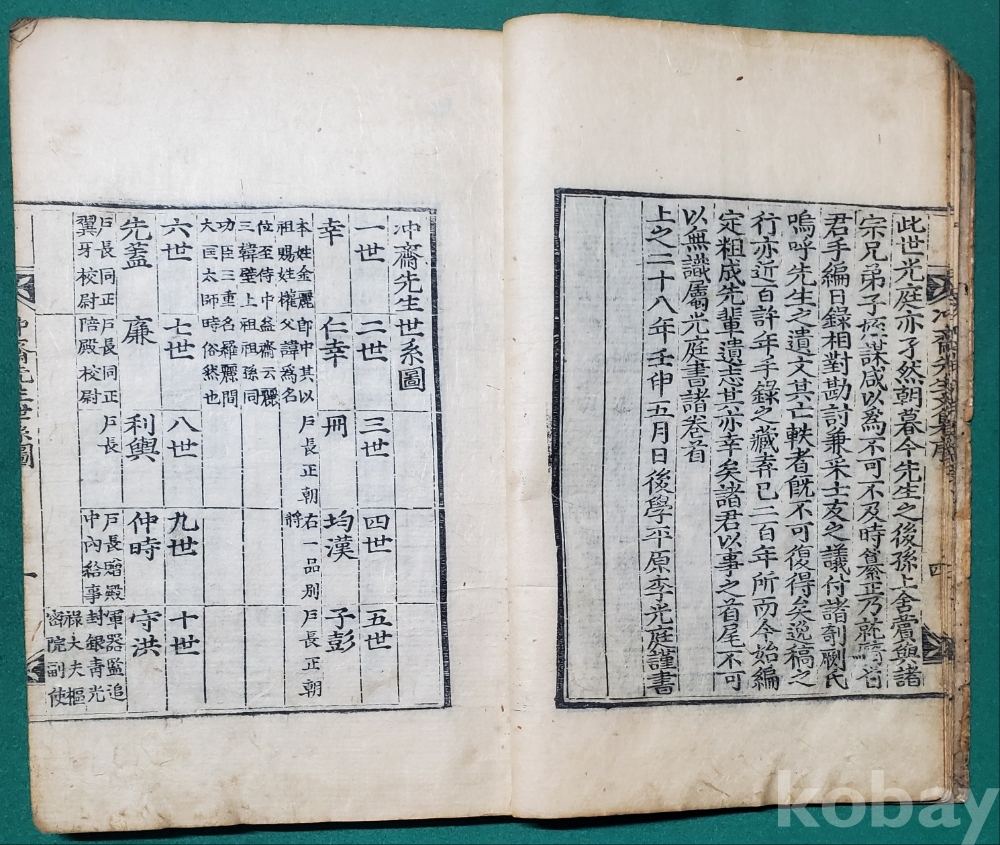 冲齋先生文集序
四
此世光庭亦孑然朝暮今先生之後孫上舍賞與諸
宗兄弟子姪謀咸以爲不可不及時釐正乃就
君手編日錄相對勘討兼采士友之議付諸剞劂氏
嗚呼先生之遺文其亡軼者旣不可復得矣巡稿之
行亦近百許年手錄之藏弆已二百年所而今始編
定粗成先輩遺志其亦幸矣諸君以事之首尾不可
以無識屬光庭書諸卷首
上之二十八年壬申五月日後學平原李光庭謹書
冲齋先生世系圖
一世 二世 三世 四世 五世
幸 仁幸 冊 均漢 子彭
本姓金麗
祖賜姓權
位至侍中
三韓壁上
功臣三重
大匡太師
郎中其以
父諱爲名
益齋云麗
祖祖孫同
名羅麗間
時俗然也
戶長正朝
右一品別
將
戶長正朝
六世 七世 八世 九世 十世
先蓋 廉 利輿 仲時 守洪
戶長同正
翼牙校尉
戶長同正
陪殿校尉
戶長
戶長贈殿
中內給事
軍器監追
封銀青光
祿大夫樞
密院副使
冲齋先生世系圖
一
kobay